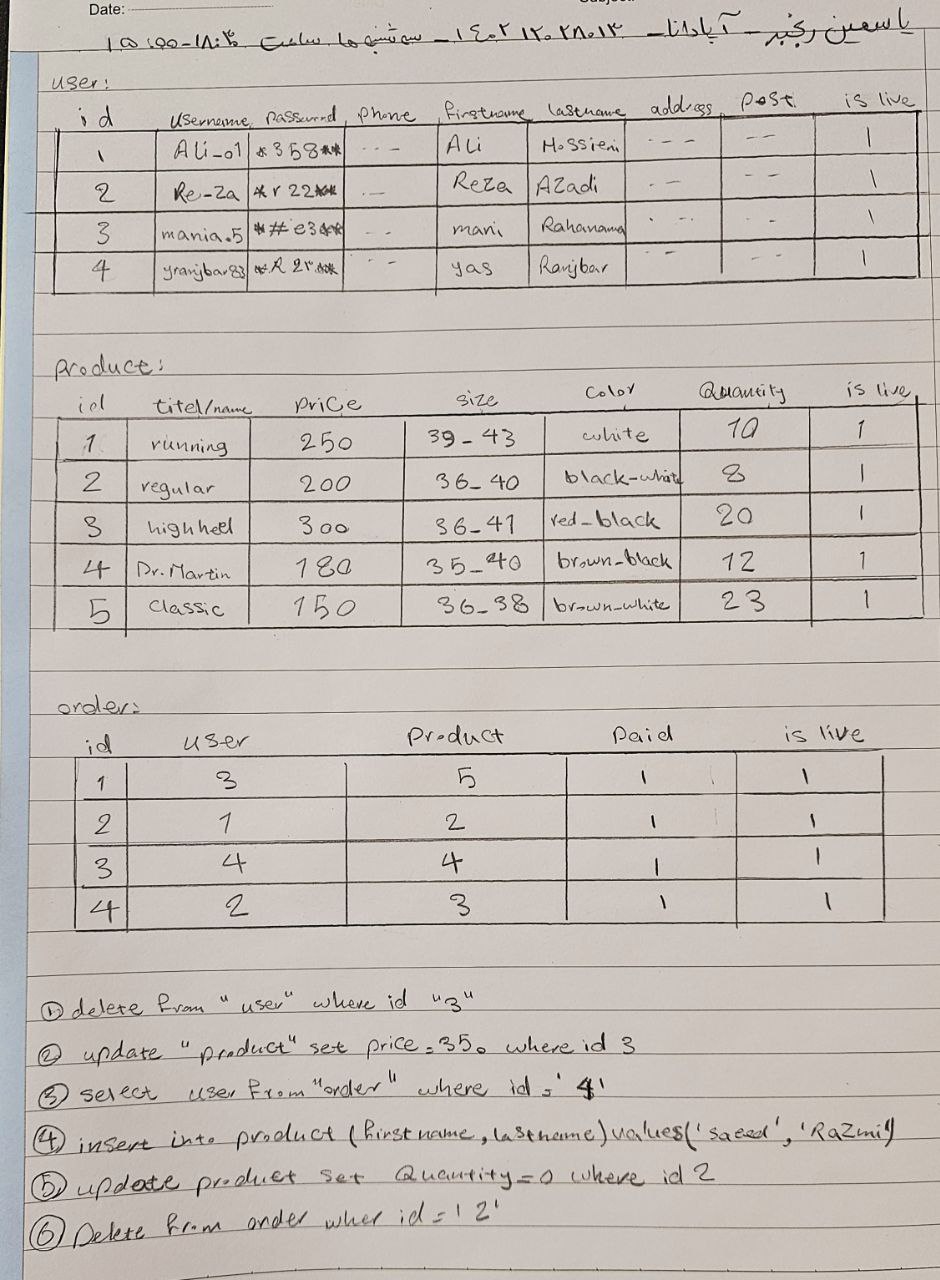 Date:
یاسمین رنجبر - آپادانا - ۱۴۰۲۱۲۰۲۸۰۱۳ - سه شنبه ها ساعت ۱۵:۰۰-۱۸:۳۰
user:
id username password phone firstname lastname address post. is live
1 Ali-01 *358** --- Ali Hossieni --- -- 1
2 Re-Za *r22** -- Reza Azadi -- -- 1
3 mania.5 *#e3** -- mani Rahanama --- -- 1
4 yranjbar83 *R2r** -- yas Ranjbar -- -- 1
product:
id titel/name price size Color Quantity is live
1 running 250 39-43 white 10 1
2 regular 200 36-40 black-white 8 1
3 high heel 300 36-41 red-black 20 1
4 Dr.Martin 180 35-40 brown-black 12 1
5 Classic 150 36-38 brown-white 23 1
order:
id user product Paid is live
1 3 5 1 1
2 1 2 1 1
3 4 4 1 1
4 2 3 1 1
① delete from "user" where id "3"
② update "product" set price=350 where id 3
③ select user from "order" where id='4'
④ insert into product (firstname, lastname) values('saeed', 'Razmi')
⑤ update product set Quantity=0 where id 2
⑥ Delete from order wher id='2'